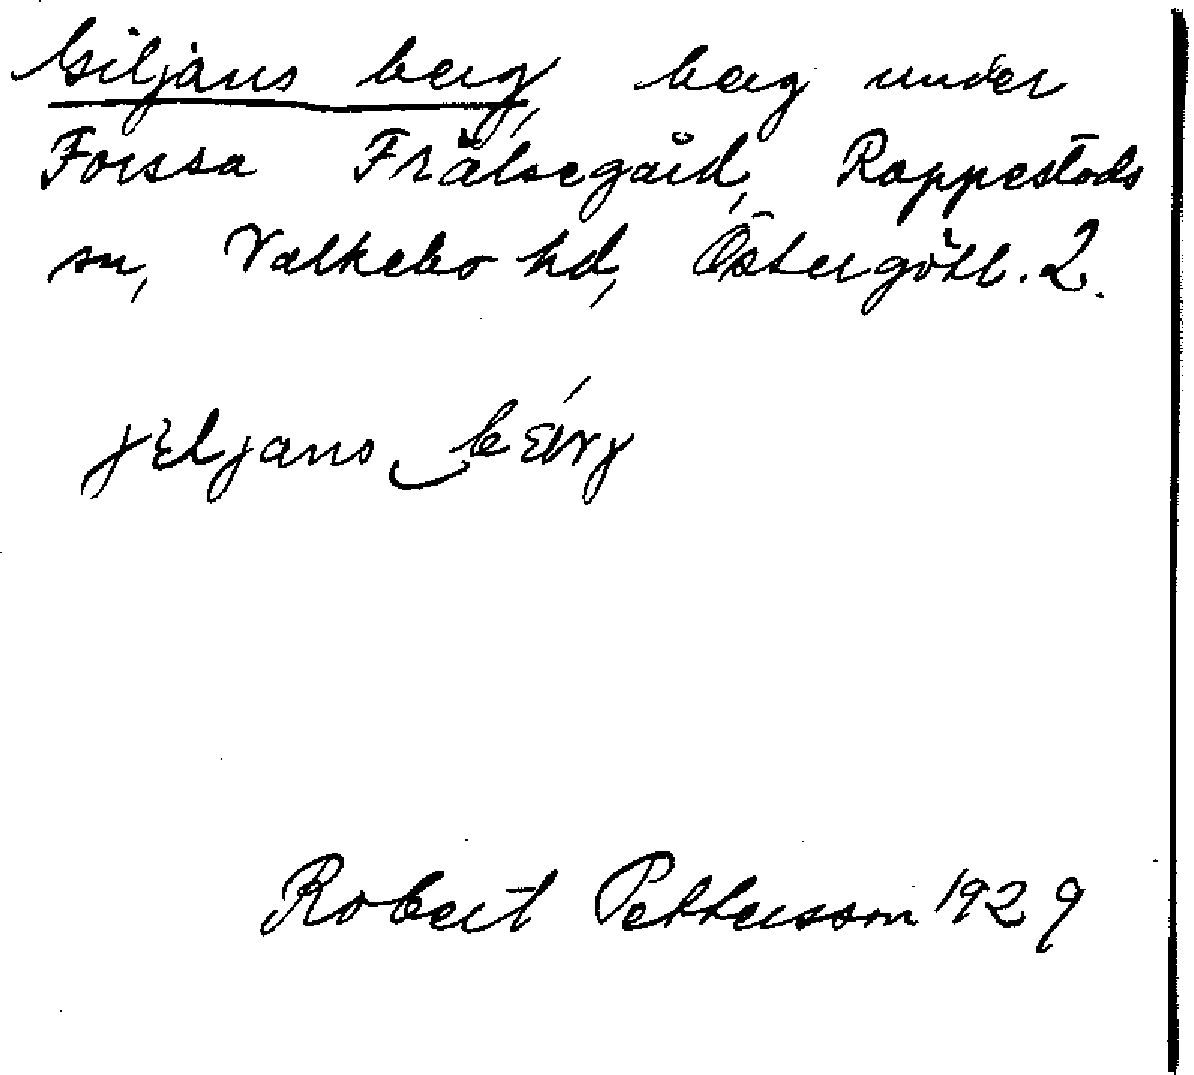 Giljans berg, berg under
Forssa Frälsegård, Rappestads
sn, Valkebo hd, Östergötl. L.
jɛljans bɛ́rj
Robert Pettersson 1929